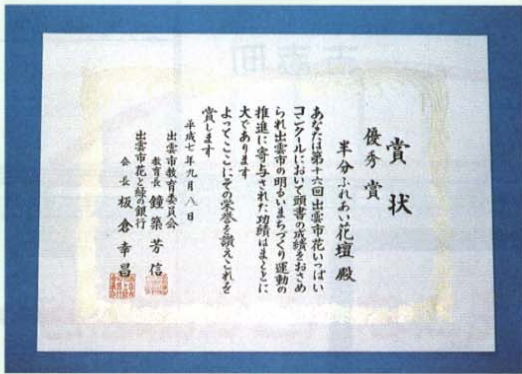 賞状
優秀賞
半分ふれあい花壇 殿
あなたは第十六回出雲市花いっぱい
コンクールにおいて頭書の成績をおさめ
られ出雲市の明るいまちづくり運動の
推進に寄与された功績はまことに
大であります
よってここにその栄誉を讃えこれを
賞します
平成七年九月八日
出雲市教育委員会
教育長 鐘築芳信
出雲市花と緑の銀行
会長 板倉幸昌